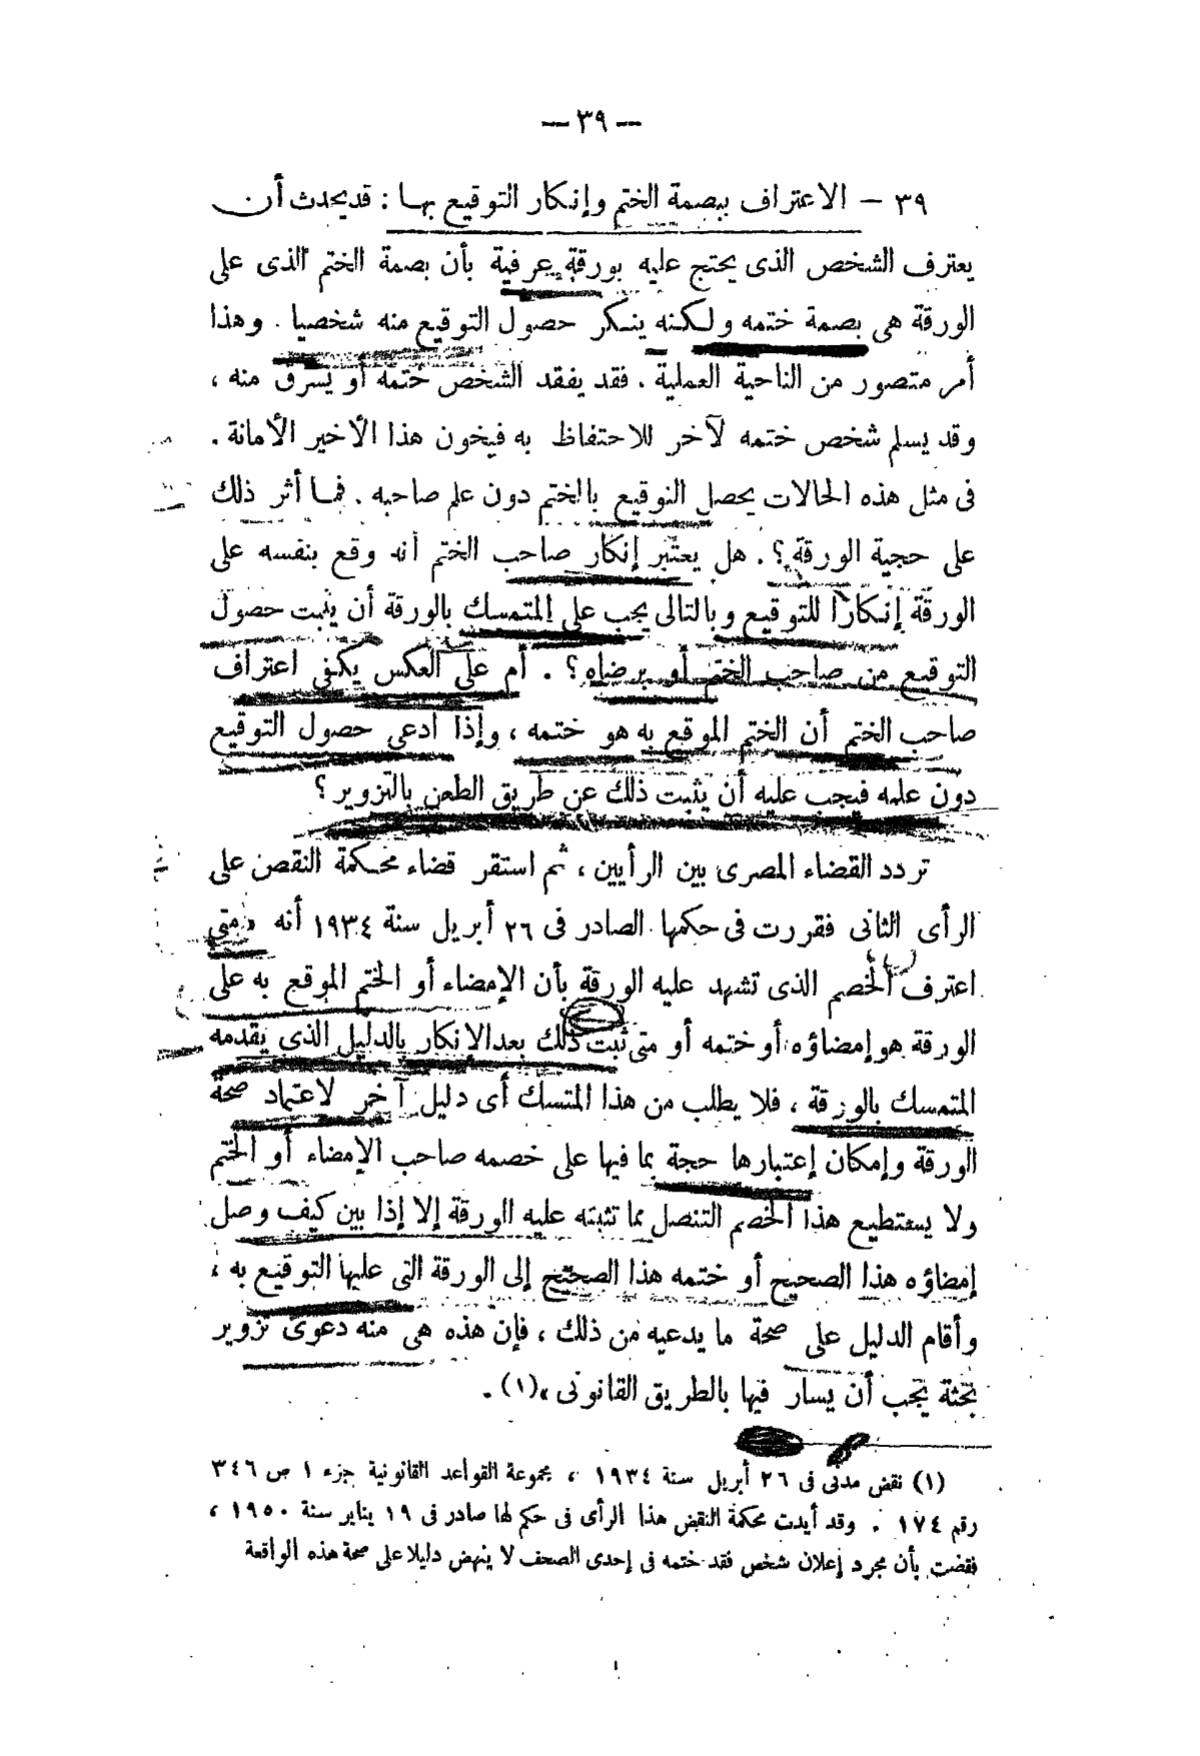 — ٣٩ —
٣٩ — الاعتراف ببصمة الختم وإنكار التوقيع بها : قد يحدث أن
يعترف الشخص الذى يحتج عليه بورقة عرفية بأن بصمة الختم الذى على
الورقة هى بصمة ختمه ولكنه ينكر حصول التوقيع منه شخصيا . وهذا
أمر متصور من الناحية العملية . فقد يفقد الشخص ختمه أو يسرق منه ،
وقد يسلم شخص ختمه لآخر للاحتفاظ به فيخون هذا الأخير الأمانة .
فى مثل هذه الحالات يحصل التوقيع بالختم دون علم صاحبه . فما أثر ذلك
على حجية الورقة ؟ . هل يعتبر إنكار صاحب الختم أنه وقع بنفسه على
الورقة إنكارا للتوقيع وبالتالى يجب على المتمسك بالورقة أن يثبت حصول
التوقيع من صاحب الختم أو برضاه ؟ . أم على العكس يكفى اعتراف
صاحب الختم أن الختم الموقع به هو ختمه ، وإذا ادعى حصول التوقيع
دون علمه فيجب عليه أن يثبت ذلك عن طريق الطعن بالتزوير ؟
تردد القضاء المصرى بين الرأيين ، ثم استقر قضاء محكمة النقض على
الرأى الثانى فقررت فى حكمها الصادر فى ٢٦ أبريل سنة ١٩٣٤ أنه « متى
اعترف الخصم الذى تشهد عليه الورقة بأن الإمضاء أو الختم الموقع به على
الورقة هو إمضاؤه أو ختمه أو متى ثبت ذلك بعد الإنكار بالدليل الذى يقدمه
المتمسك بالورقة ، فلا يطلب من هذا المتسك أى دليل آخر لاعتماد صحة
الورقة وإمكان إعتبارها حجة بما فيها على خصمه صاحب الإمضاء أو الختم
ولا يستطيع هذا الخصم التنصل مما تثبته عليه الورقة إلا إذا بين كيف وصل
إمضاؤه هذا الصحيح أو ختمه هذا الصحيح إلى الورقة التى عليها التوقيع به ،
وأقام الدليل على صحة ما يدعيه من ذلك ، فإن هذه هى منه دعوى تزوير
بحتة يجب أن يسار فيها بالطريق القانونى »(١) .
(١) نقض مدنى فى ٢٦ أبريل سنة ١٩٣٤ ، مجموعة القواعد القانونية جزء ١ ص ٣٤٦
رقم ١٧٤ . وقد أيدت محكمة النقض هذا الرأى فى حكم لها صادر فى ١٩ يناير سنة ١٩٥٠ ،
فقضت بأن مجرد إعلان شخص فقد ختمه فى إحدى الصحف لا ينهض دليلا على صحة هذه الواقعة